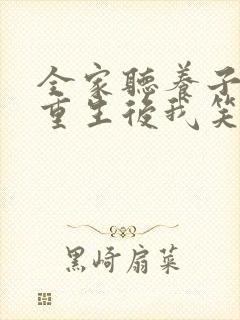 全家聽養子
重生後我笑
黑崎扇菜